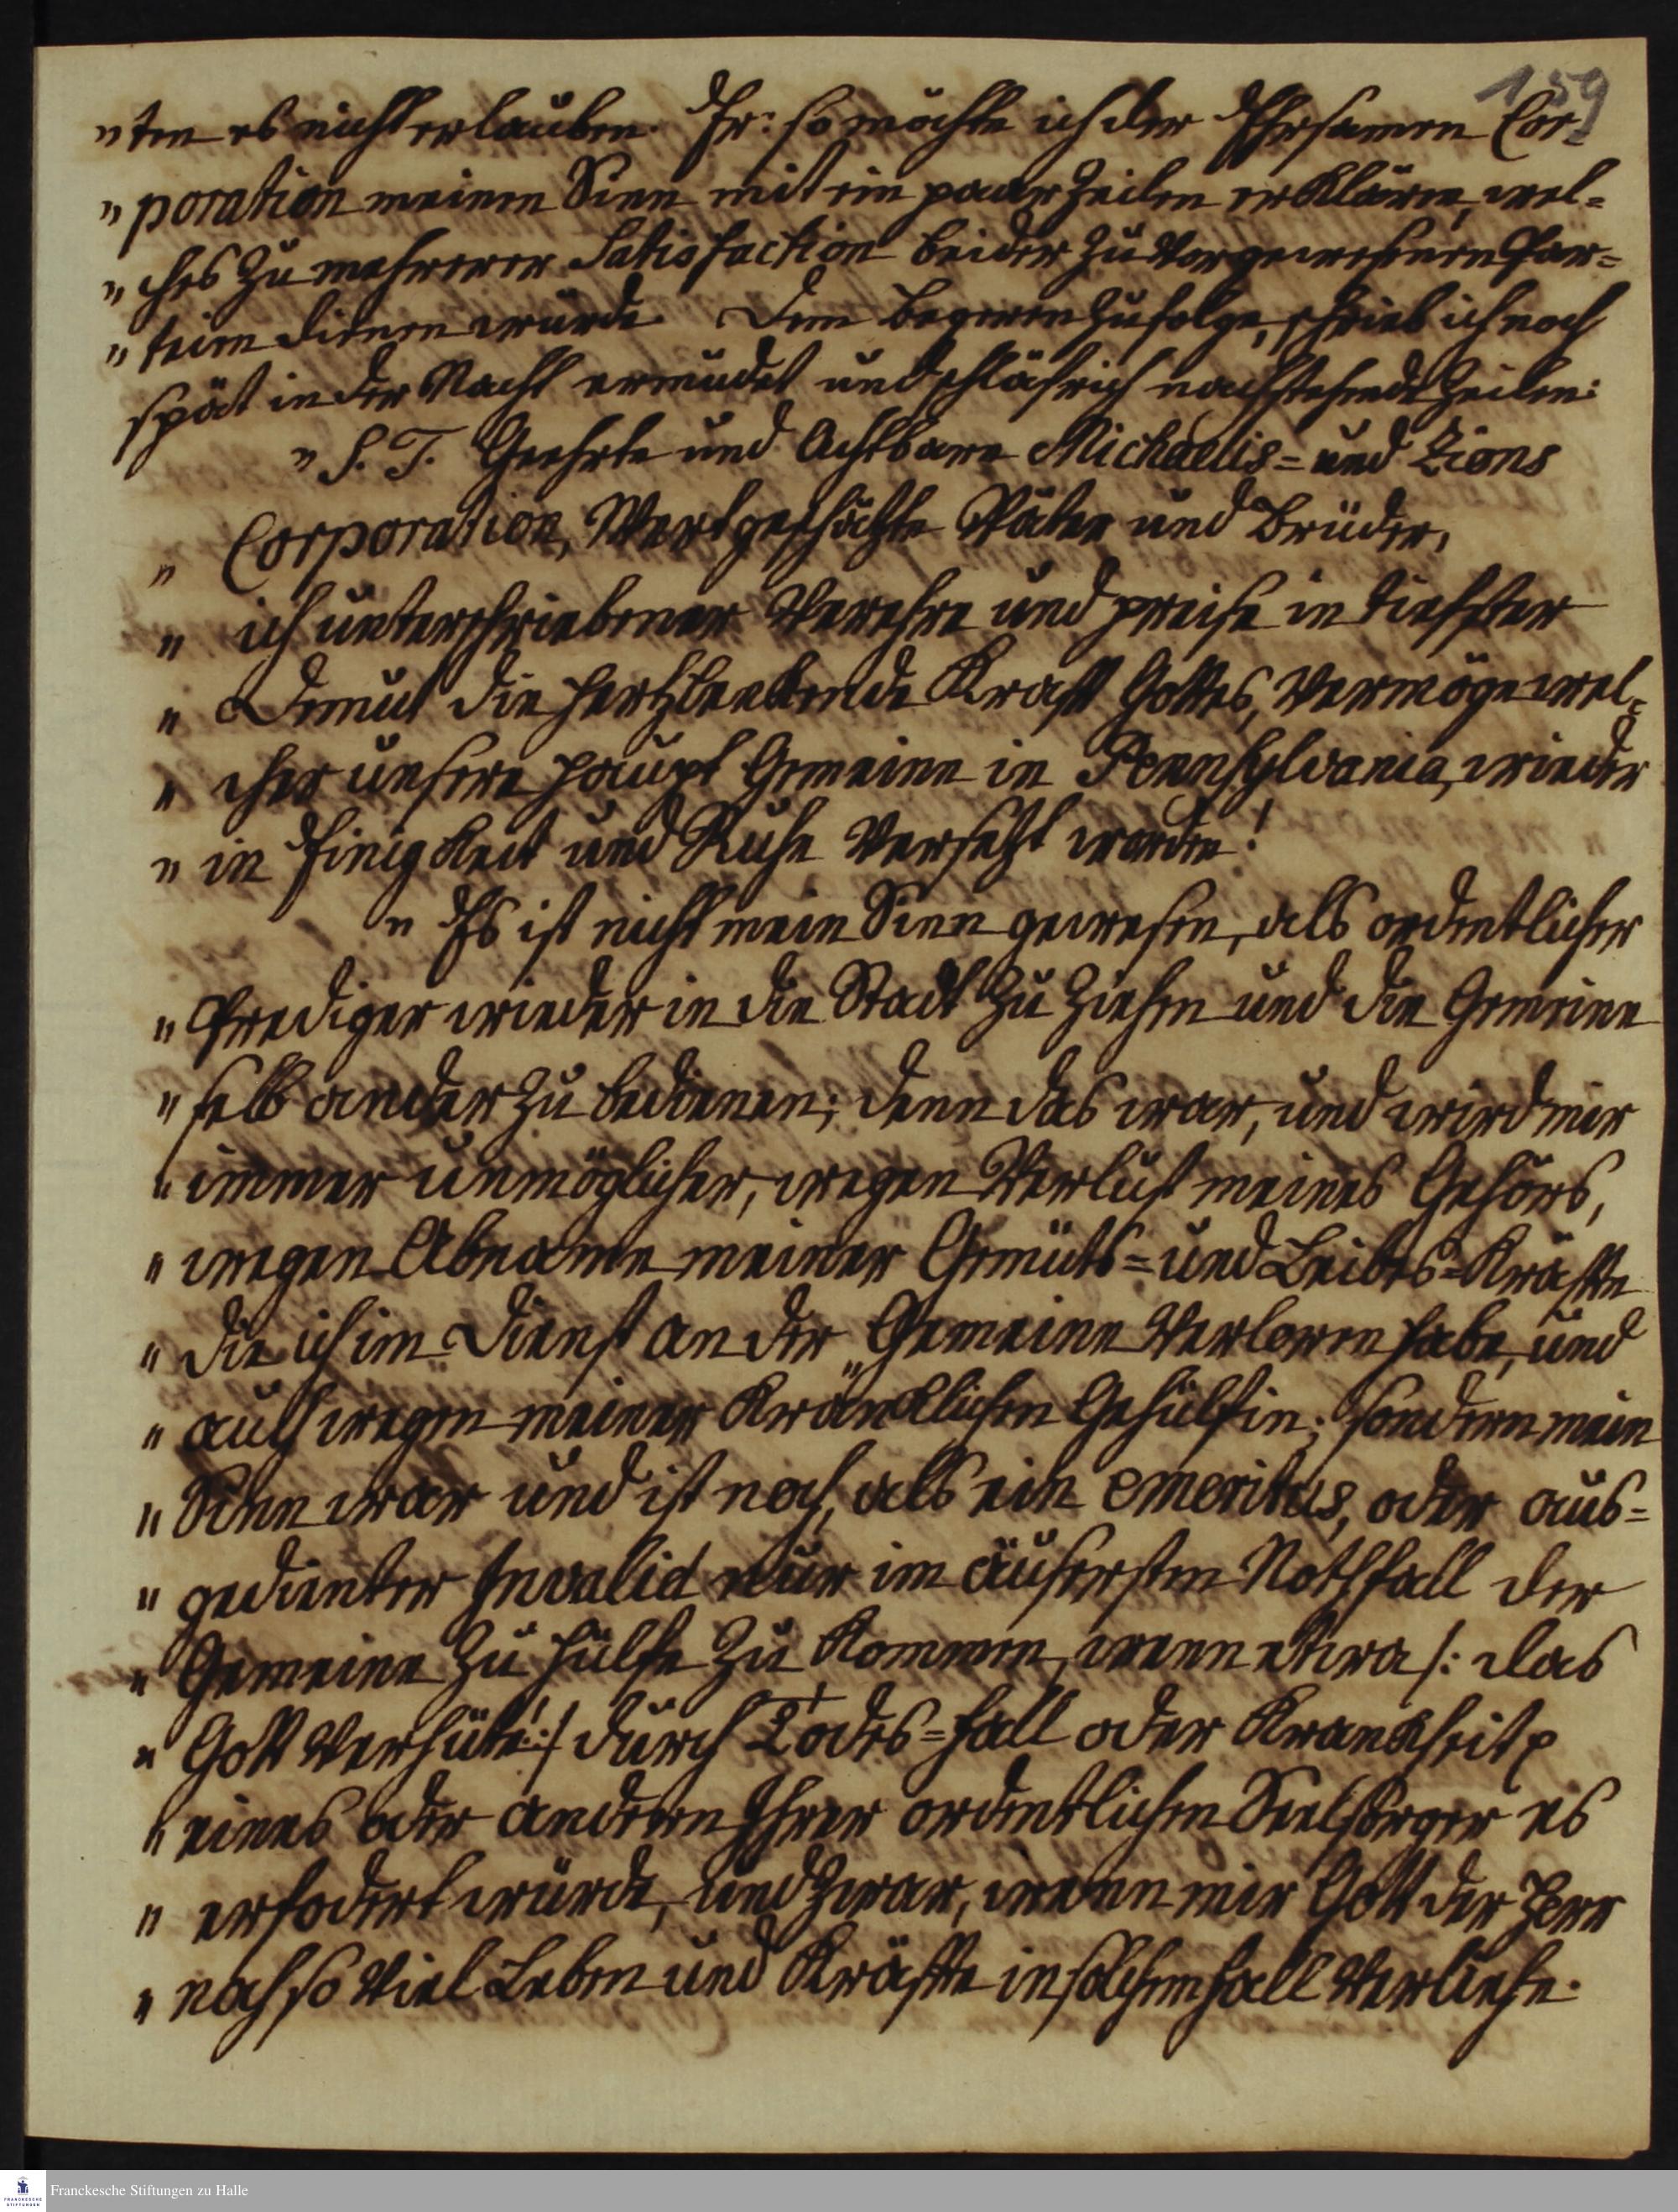 159
„ten es nicht erlauben. Er: so möchte ich der Ehrsamen Cor-
„poration meinen Sinn mit ein paar Zeilen erklären, wel-
„ches zu mehrerer Satisfaction beider zuvor gewesenen Par-
„teien dienen würde. Dem Begeren zufolge, schrieb ich noch
spät in der Nacht ermüdet und schläfrich nachstehende Zeilen:
„S. T. Geehrte und Achtbare Michaelis- und Zions
„Corporation, Wertgeschäzte Väter und Brüder,
„ich unterschriebener Verehre und preise in tiefster
„Demut die hertzlenkende Kraft Gottes, Vermöge wel-
„cher unsere haupt Gemeine in Pennsylvania, wieder
„in Einigkeit und Ruhe Versezt worden!
„Es ist nicht mein Sinn gewesen, als ordentlicher
„Prediger wieder in die Stadt zu ziehen und die Gemeine
„selb ander zu bedienen; denn das war, und wird mir
„immer unmöglicher, wegen Verlust meines Gehörs,
„wegen Abname meiner Gemüts- und Leibes-Kräfte
„die ich im Dienst an der Gemeine Verloren habe, und
„auch wegen meiner Kräncklichen Gehülfin; sondern mein
„Sinn war und ist noch, als ein emeritus, oder aus-
„gedienter Invalid nur im äusersten Nothfall der
„Gemeine zu hülfe zu kommen, wenn etwa /: das
„Gott Verhüte! :/ durch Todes-fall oder Kranckheit p
„eines oder andern Ihrer ordentlichen Seelsorger es
„erfodert würde, und zwar, wenn mir Gott der Herr
„noch so Viel Leben und Kräfte in solchem fall Verliehe.
Franckesche Stiftungen zu Halle